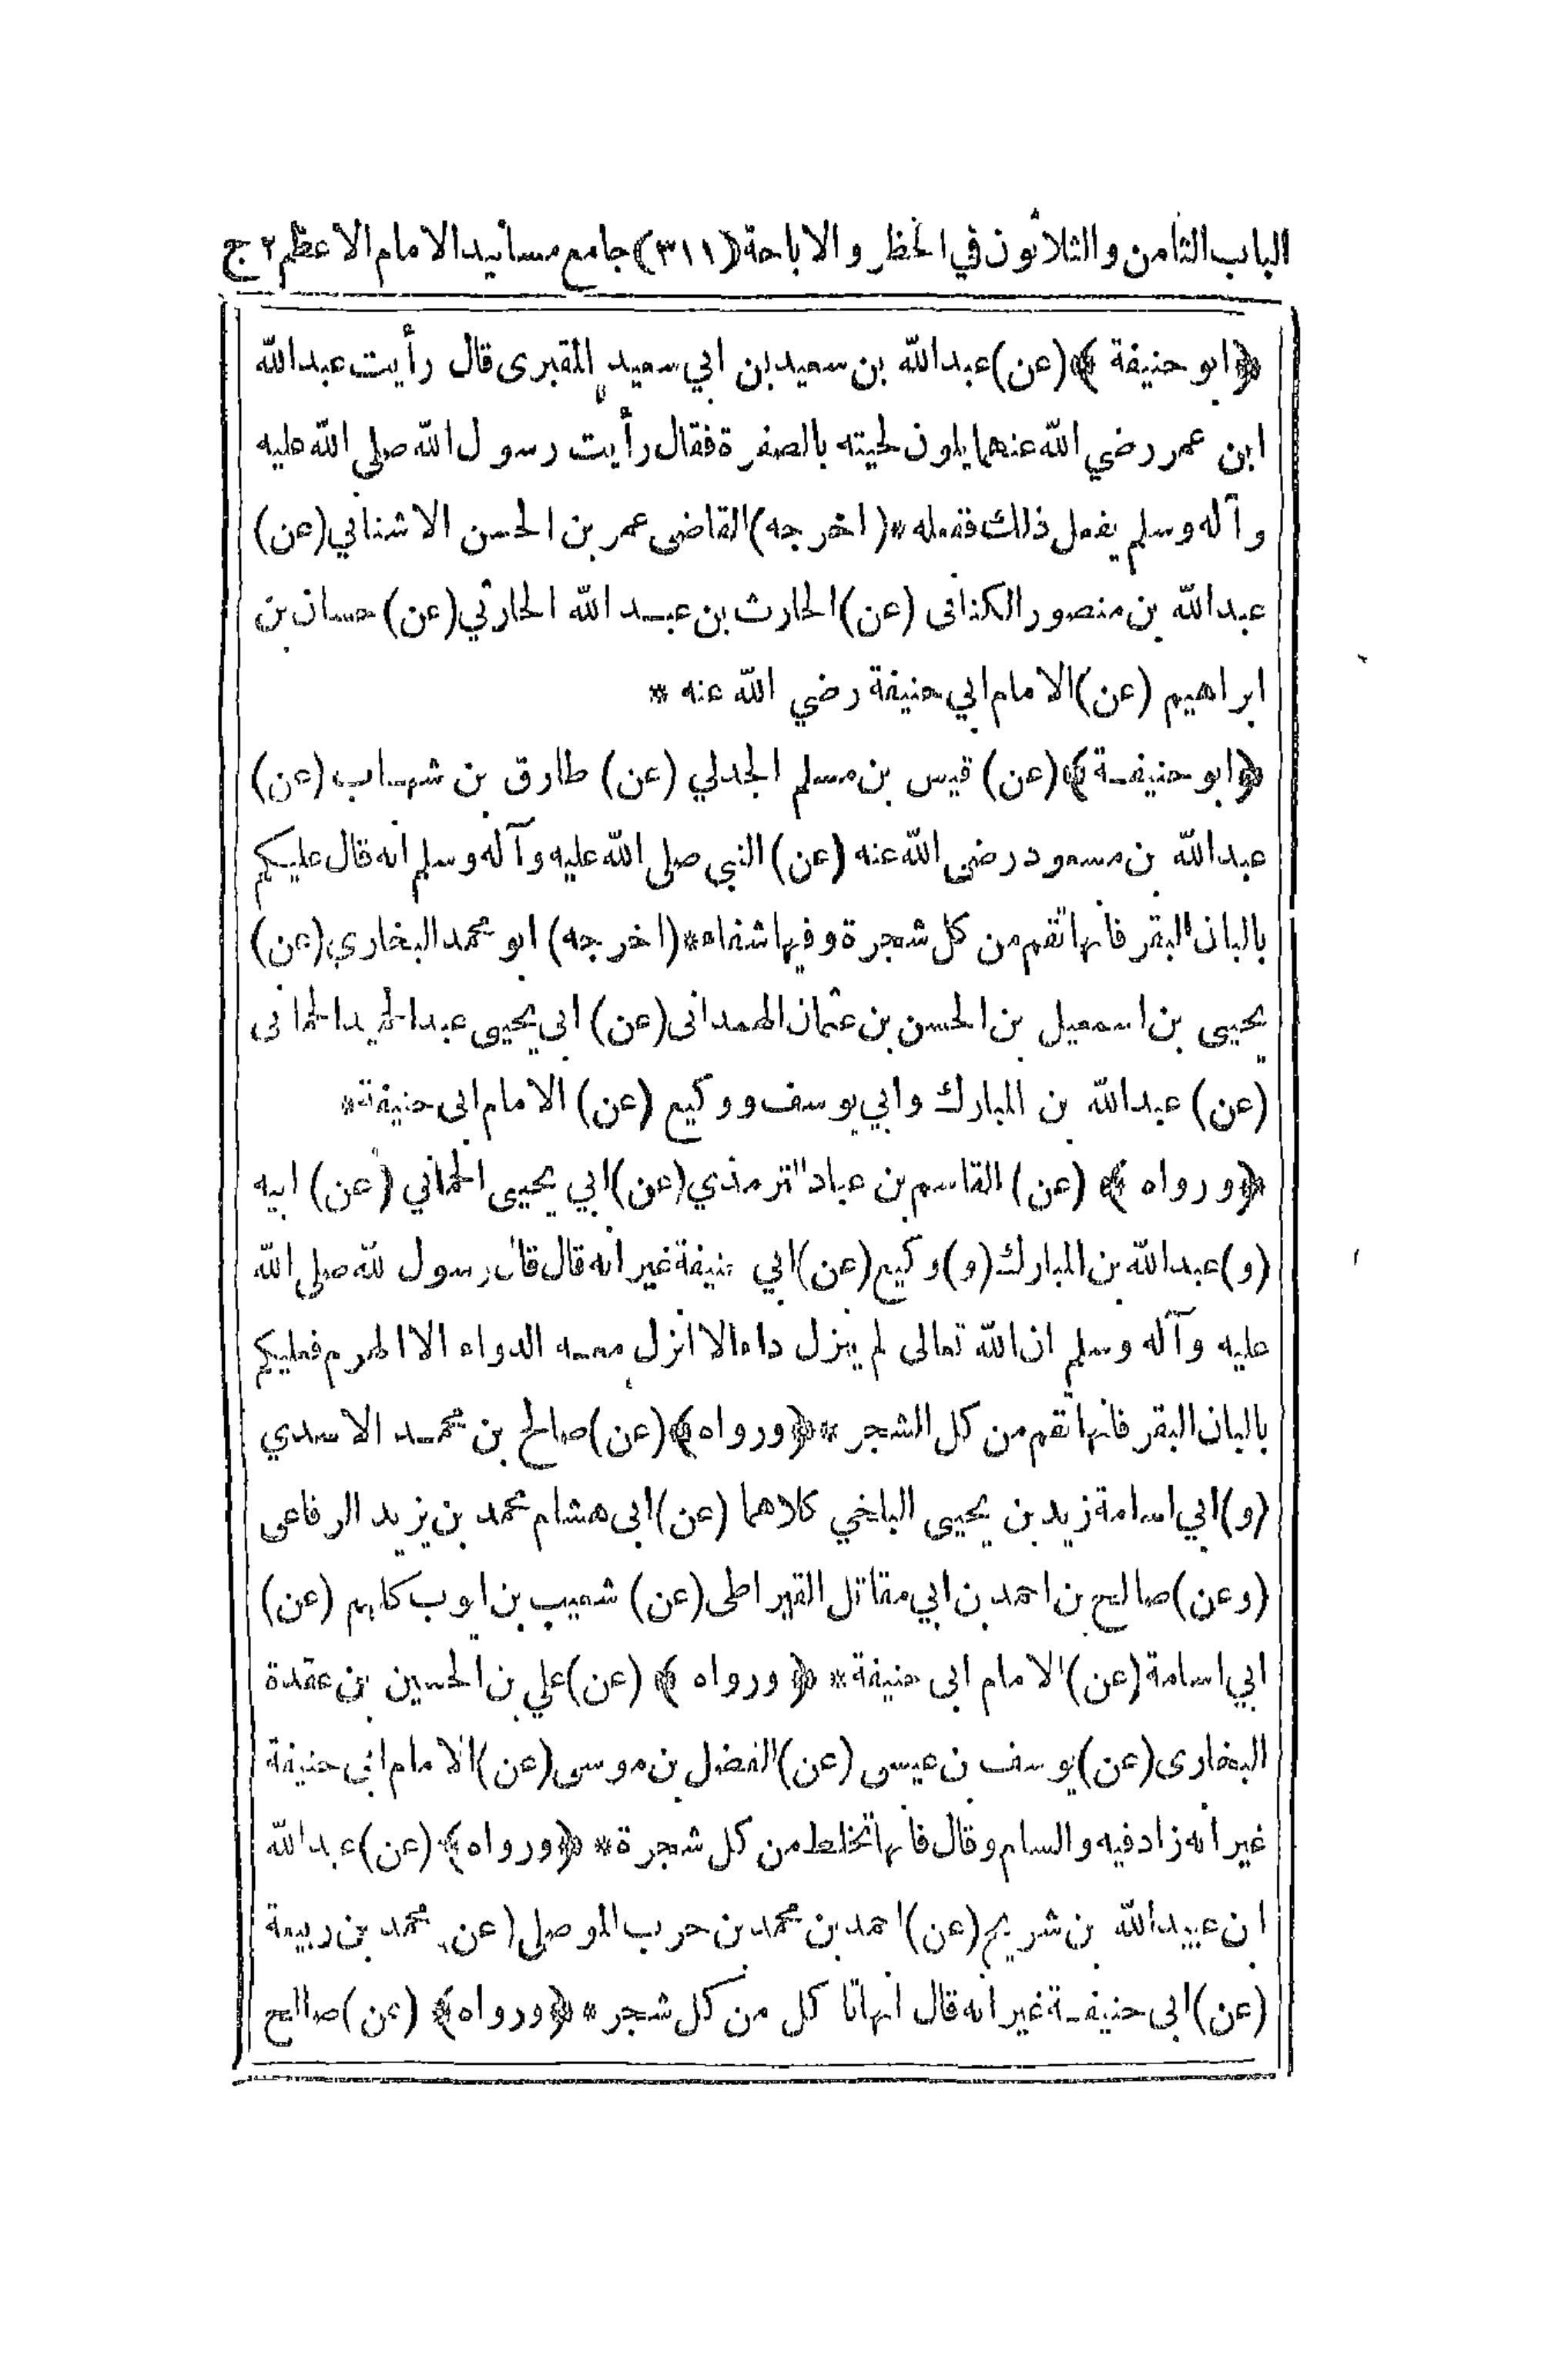 الباب الثامن والثلاثون في الحظر والاباحة (٣١١) جامع مسانيد الامام الاعظم ٢ ج
﴿ابو حنيفة﴾ (عن) عبدالله بن سعيد بن ابي سعيد المقبرى قال رأيت عبدالله
ابن عمر رضي الله عنهما يلون لحيته بالصفرة فقال رأيت رسول الله صلى الله عليه
وآله وسلم يفعل ذلك ففعله * (اخرجه) القاضى عمر بن الحسن الاشناني (عن)
عبدالله بن منصور الكنانى (عن) الحارث بن عبد الله الحارثي (عن) حسان بن
ابراهيم (عن) الامام ابي حنيفة رضي الله عنه *
﴿ابو حنيفة﴾ (عن) قيس بن مسلم الجدلي (عن) طارق بن شهاب (عن)
عبدالله بن مسعود رضى الله عنه (عن) النبي صلى الله عليه وآله وسلم انه قال عليكم
بالبان البقر فانها تقم من كل شجرة وفيها شفاء * (اخرجه) ابو محمد البخاري (عن)
يحيى بن اسمعيل بن الحسن بن عثمان الهمدانى (عن) ابى يحيى عبدالحميد الحمانى
(عن) عبدالله بن المبارك وابي يوسف ووكيع (عن) الامام ابى حنيفة *
﴿ورواه﴾ (عن) القاسم بن عباد الترمذي (عن) ابي يحيى الحماني (عن) ابيه
(و) عبدالله بن المبارك (و) وكيع (عن) ابي حنيفة غير انه قال قال رسول الله صلى الله
عليه وآله وسلم ان الله تعالى لم ينزل داء الا انزل معه الدواء الا الهرم فعليكم
بالبان البقر فانها تقم من كل الشجر * ﴿ورواه﴾ (عن) صالح بن محمد الاسدي
(و) ابي اسامة زيد بن يحيى البلخي كلاهما (عن) ابى هشام محمد بن يزيد الرفاعى
(وعن) صالح بن احمد بن ابي مقاتل القيراطى (عن) شعيب بن ايوب كلهم (عن)
ابي اسامة (عن) الامام ابى حنيفة * ﴿ورواه﴾ (عن) علي بن الحسين بن عقدة
البخارى (عن) يوسف بن عيسى (عن) الفضل بن موسى (عن) الامام ابى حنيفة
غير انه زاد فيه والسام وقال فانها تخلط من كل شجرة * ﴿ورواه﴾ (عن) عبدالله
ابن عبيدالله بن شريح (عن) احمد بن محمد بن حرب الموصلى (عن) محمد بن ربيعة
(عن) ابى حنيفة غير انه قال انها تاكل من كل شجر * ﴿ورواه﴾ (عن) صالح